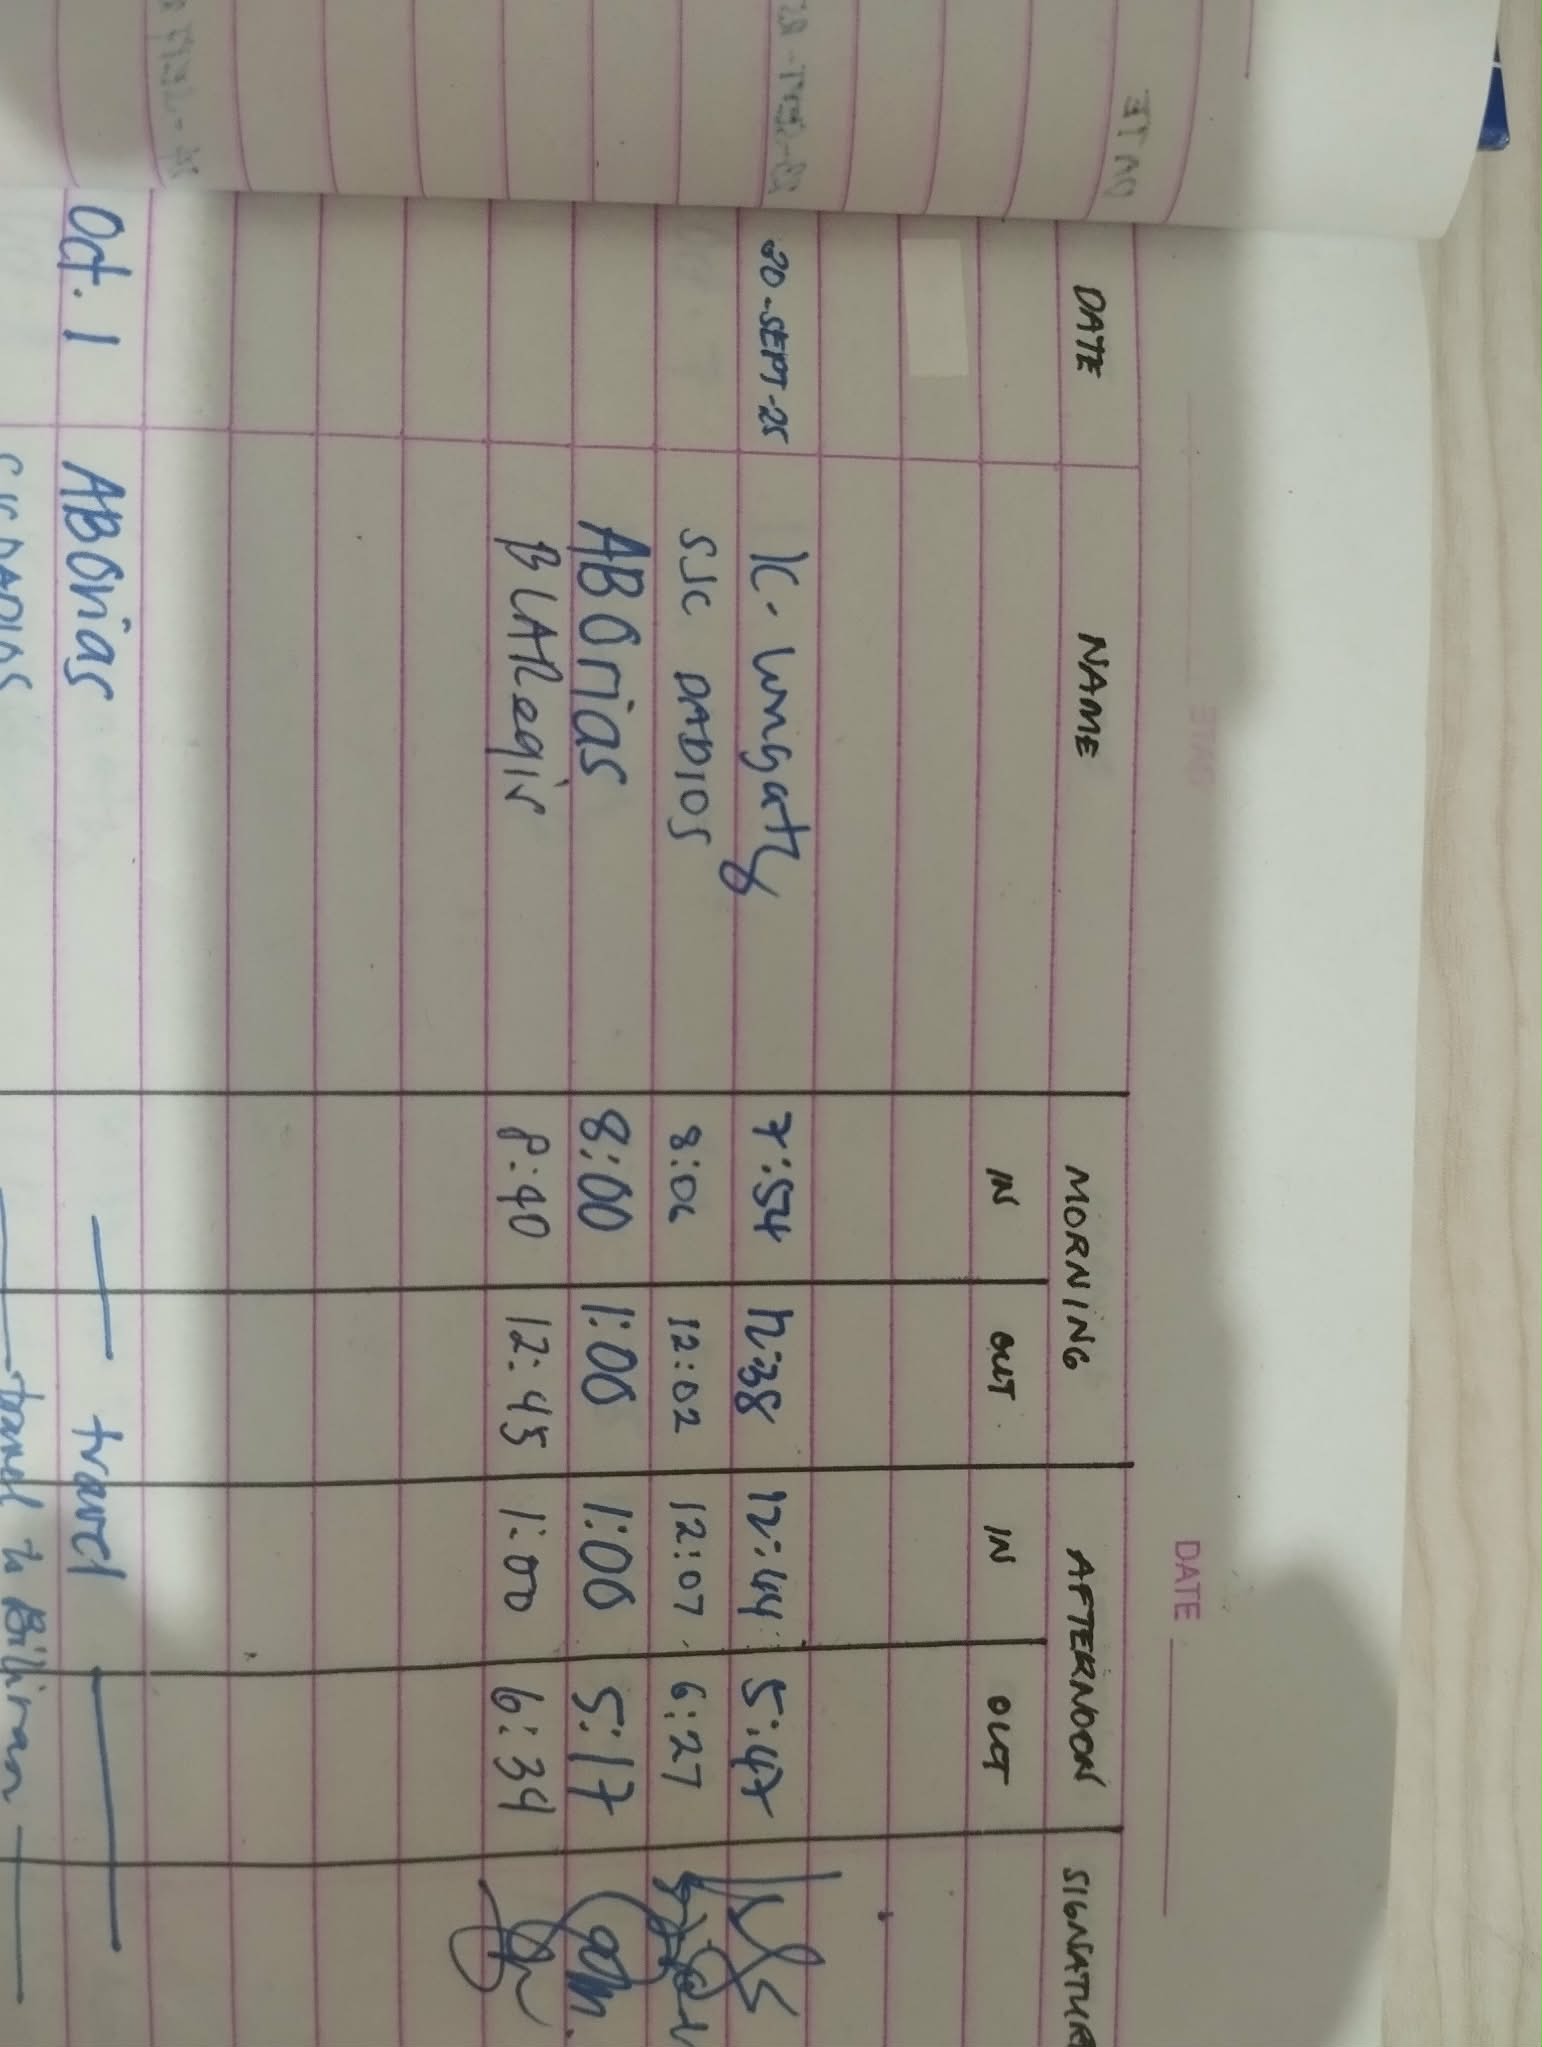 DATE
DATE NAME MORNING AFTERNOON SIGNATURE
IN OUT IN OUT
30-SEPT-25 7:54 12:38 12:44 5:47
SJC DADIOS 8:06 12:02 12:07 6:27
ABOrias 8:00 1:00 1:00 5:17
BLAReqis 8:40 12:45 1:00 6:34
Oct. 1 ABOrias travel
SJC DADIOS travel to Biliran